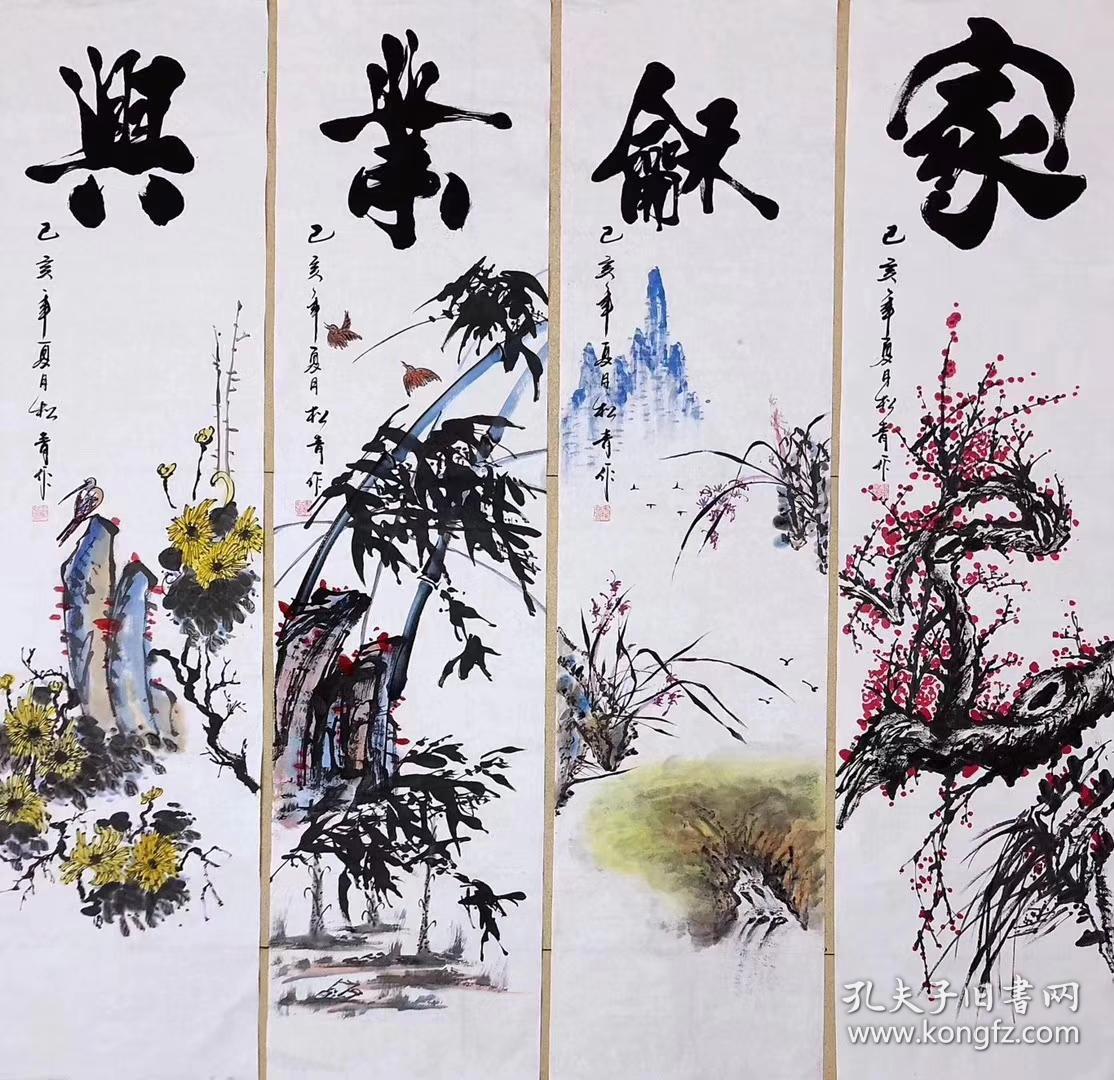 家龢業興
己亥年夏月松青作
己亥年夏月松青作
己亥年夏月松青作
己亥年夏月松青作
孔夫子旧书网
www.kongfz.com